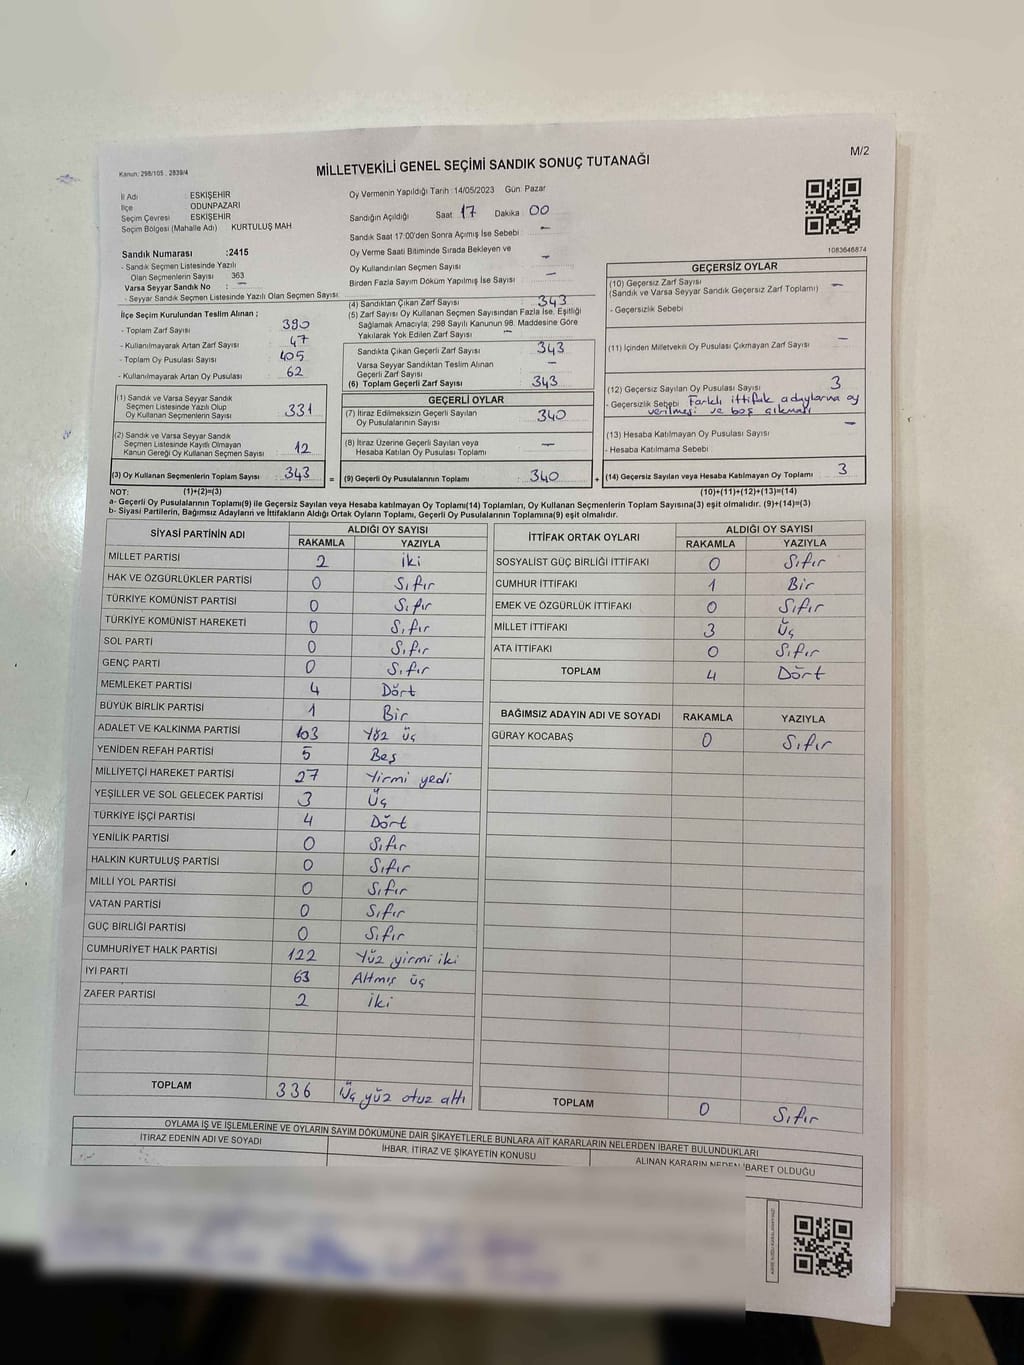 Kanun: 298/105 , 2839/4
MİLLETVEKİLİ GENEL SEÇİMİ SANDIK SONUÇ TUTANAĞI
M/2
İl Adı : ESKİŞEHİR
İlçe : ODUNPAZARI
Seçim Çevresi : ESKİŞEHİR
Seçim Bölgesi (Mahalle Adı) KURTULUŞ MAH
Sandık Numarası :2415
- Sandık Seçmen Listesinde Yazılı
Olan Seçmenlerin Sayısı 363
Varsa Seyyar Sandık No : -
- Seyyar Sandık Seçmen Listesinde Yazılı Olan Seçmen Sayısı:
İlçe Seçim Kurulundan Teslim Alınan ;
- Toplam Zarf Sayısı 390
- Kullanılmayarak Artan Zarf Sayısı 47
- Toplam Oy Pusulası Sayısı 405
- Kullanılmayarak Artan Oy Pusulası 62
(1) Sandık ve Varsa Seyyar Sandık
Seçmen Listesinde Yazılı Olup
Oy Kullanan Seçmenlerin Sayısı 331
(2) Sandık ve Varsa Seyyar Sandık
Seçmen Listesinde Kayıtlı Olmayan
Kanun Gereği Oy Kullanan Seçmen Sayısı 12
(3) Oy Kullanan Seçmenlerin Toplam Sayısı : 343 =
Oy Vermenin Yapıldığı Tarih :14/05/2023 Gün: Pazar
Sandığın Açıldığı Saat 17 Dakika 00
Sandık Saat 17:00'den Sonra Açımış İse Sebebi -
Oy Verme Saati Bitiminde Sırada Bekleyen ve
Oy Kullandırılan Seçmen Sayısı -
Birden Fazla Sayım Döküm Yapılmış İse Sayısı -
(4) Sandıktan Çıkan Zarf Sayısı 343
(5) Zarf Sayısı Oy Kullanan Seçmen Sayısından Fazla İse, Eşitliği
Sağlamak Amacıyla, 298 Sayılı Kanunun 98. Maddesine Göre
Yakılarak Yok Edilen Zarf Sayısı -
Sandıkta Çıkan Geçerli Zarf Sayısı 343
Varsa Seyyar Sandıktan Teslim Alınan
Geçerli Zarf Sayısı -
(6) Toplam Geçerli Zarf Sayısı : 343
GEÇERLİ OYLAR
(7) İtiraz Edilmeksizin Geçerli Sayılan
Oy Pusulalarının Sayısı 340
(8) İtiraz Üzerine Geçerli Sayılan veya
Hesaba Katılan Oy Pusulası Toplamı -
(9) Geçerli Oy Pusulalarının Toplamı : 340 +
1083646874
GEÇERSİZ OYLAR
(10) Geçersiz Zarf Sayısı
(Sandık ve Varsa Seyyar Sandık Geçersiz Zarf Toplamı) -
- Geçersizlik Sebebi
(11) İçinden Milletvekili Oy Pusulası Çıkmayan Zarf Sayısı -
(12) Geçersiz Sayılan Oy Pusulası Sayısı 3
- Geçersizlik Sebebi Farklı ittifak adaylarına oy
verilmesi ve boş çıkması
(13) Hesaba Katılmayan Oy Pusulası Sayısı -
- Hesaba Katılmama Sebebi
(14) Geçersiz Sayılan veya Hesaba Katılmayan Oy Toplamı : 3
NOT: (1)+(2)=(3) (10)+(11)+(12)+(13)=(14)
a- Geçerli Oy Pusulalarının Toplamı(9) ile Geçersiz Sayılan veya Hesaba katılmayan Oy Toplamı(14) Toplamları, Oy Kullanan Seçmenlerin Toplam Sayısına(3) eşit olmalıdır. (9)+(14)=(3)
b- Siyasi Partilerin, Bağımsız Adayların ve İttifakların Aldığı Ortak Oyların Toplamı, Geçerli Oy Pusulalarının Toplamına(9) eşit olmalıdır.
SİYASİ PARTİNİN ADI ALDIĞI OY SAYISI
RAKAMLA YAZIYLA
MİLLET PARTİSİ 2 iki
HAK VE ÖZGÜRLÜKLER PARTİSİ 0 Sıfır
TÜRKİYE KOMÜNİST PARTİSİ 0 Sıfır
TÜRKİYE KOMÜNİST HAREKETİ 0 Sıfır
SOL PARTİ 0 Sıfır
GENÇ PARTİ 0 Sıfır
MEMLEKET PARTİSİ 4 Dört
BÜYÜK BİRLİK PARTİSİ 1 Bir
ADALET VE KALKINMA PARTİSİ 103 Yüz üç
YENİDEN REFAH PARTİSİ 5 Beş
MİLLİYETÇİ HAREKET PARTİSİ 27 Yirmi yedi
YEŞİLLER VE SOL GELECEK PARTİSİ 3 Üç
TÜRKİYE İŞÇİ PARTİSİ 4 Dört
YENİLİK PARTİSİ 0 Sıfır
HALKIN KURTULUŞ PARTİSİ 0 Sıfır
MİLLİ YOL PARTİSİ 0 Sıfır
VATAN PARTİSİ 0 Sıfır
GÜÇ BİRLİĞİ PARTİSİ 0 Sıfır
CUMHURİYET HALK PARTİSİ 122 Yüz yirmi iki
İYİ PARTİ 63 Altmış üç
ZAFER PARTİSİ 2 iki
TOPLAM 336 Üç yüz otuz altı
İTTİFAK ORTAK OYLARI ALDIĞI OY SAYISI
RAKAMLA YAZIYLA
SOSYALİST GÜÇ BİRLİĞİ İTTİFAKI 0 Sıfır
CUMHUR İTTİFAKI 1 Bir
EMEK VE ÖZGÜRLÜK İTTİFAKI 0 Sıfır
MİLLET İTTİFAKI 3 Üç
ATA İTTİFAKI 0 Sıfır
TOPLAM 4 Dört
BAĞIMSIZ ADAYIN ADI VE SOYADI RAKAMLA YAZIYLA
GÜRAY KOCABAŞ 0 Sıfır
TOPLAM 0 Sıfır
OYLAMA İŞ VE İŞLEMLERİNE VE OYLARIN SAYIM DÖKÜMÜNE DAİR ŞİKAYETLERLE BUNLARA AİT KARARLARIN NELERDEN İBARET BULUNDUKLARI
İTİRAZ EDENİN ADI VE SOYADI İHBAR, İTİRAZ VE ŞİKAYETİN KONUSU ALINAN KARARIN NEDEN İBARET OLDUĞU